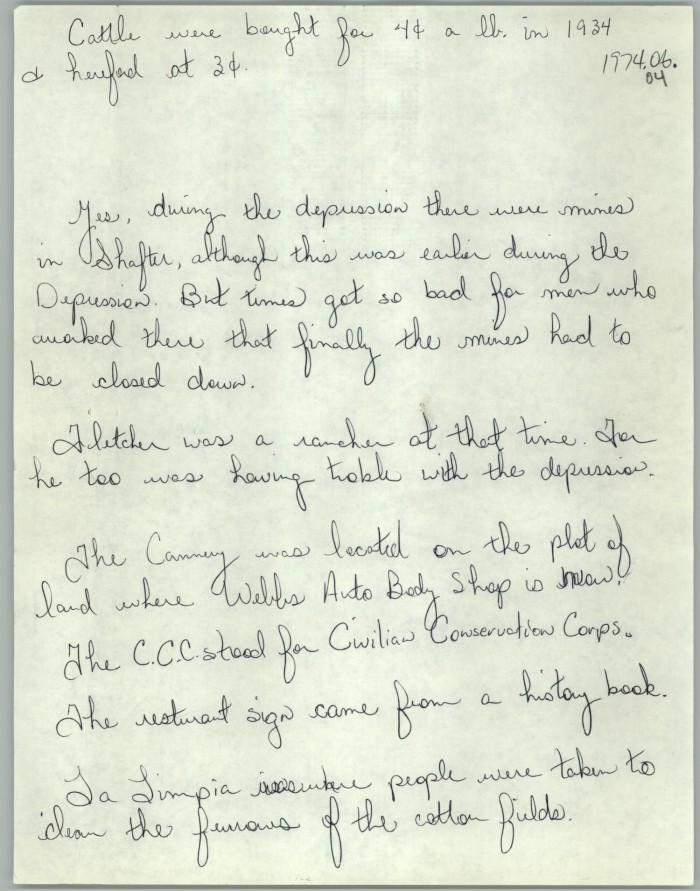 Cattle were bought for 4¢ a lb. in 1934
& hereford at 3¢.
1974.06.
04
Yes, during the depression there were mines
in Shafter, although this was earlier during the
Depression. But times got so bad for men who
worked there that finally the mines had to
be closed down.
Fletcher was a rancher at that time. For
he too was having troble with the depression.
The Cannery was located on the plot of
land where Webbs Auto Body Shop is now.
The C.C.C. stood for Civilian Conservation Corps.
The resturant sign came from a history book.
La Limpia was where people were taken to
clean the furrows of the cotton fields.